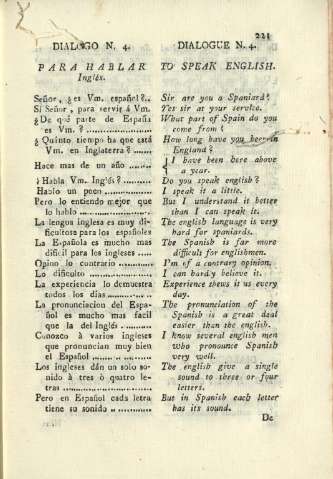 221
DIALOGO N. 4.
PARA HABLAR
Inglés.
Señor, ¿ es Vm. español ?..
Si Señor, para servir á Vm.
¿ De qué parte de España
es Vm. ? ..................
¿ Quánto tiempo ha que está
Vm. en Inglaterra ? ......
Hace mas de un año ......
¿ Habla Vm. Inglés ? .........
Hablo un poco ...............
Pero lo entiendo mejor que
lo hablo ..................
La lengua inglesa es muy di-
ficultosa para los españoles
La Española es mucho mas
dificil para los ingleses ....
Opino lo contrario ............
Lo dificulto ..................
La experiencia lo demuestra
todos los dias ............
La pronunciacion del Espa-
ñol es mucho mas facil
que la del Inglés .........
Conozco á varios ingleses
que pronuncian muy bien
el Español ...............
Los ingleses dán un solo so-
nido á tres ó quatro le-
tras .....................
Pero en Español cada letra
tiene su sonido ............
DIALOGUE N. 4.
TO SPEAK ENGLISH.
Sir are you a Spaniard?
Yes sir at your service.
What part of Spain do you
come from ?
How long have you been in
England ?
I have been here above
a year.
Do you speak english ?
I speak it a little.
But I understand it better
than I can speak it.
The english language is very
hard for spaniards.
The Spanish is far more
difficult for englishmen.
I'm of a contrary opinion.
I can hardly believe it.
Experience shews it us every
day.
The pronunciation of the
Spanish is a great deal
easier than the english.
I know several english men
who pronounce Spanish
very well.
The english give a single
sound to three or four
letters.
But in Spanish each letter
has its sound.
De